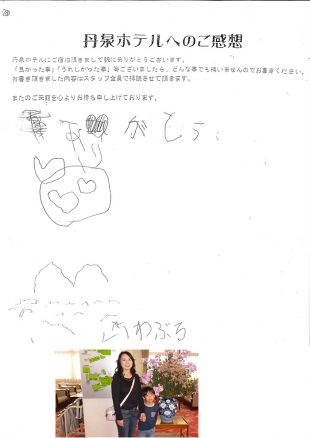 丹泉ホテルへのご感想
丹泉ホテルにご宿泊頂きまして誠にありがとうございます。
「良かった事」「うれしかった事」等ございましたら、どんな事でも構いませんのでお書きください。
お書き頂きました内容はスタッフ全員で拝読させて頂きます。
またのご来館を心よりお待ち申し上げております。
ありがとう
かわぶち